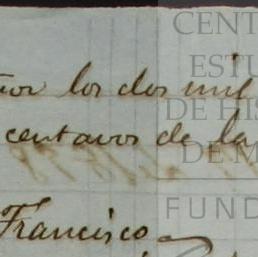 los dos mil
centavos de la
Francisco
CENT
ESTU
DE HIS
DE M
FUND